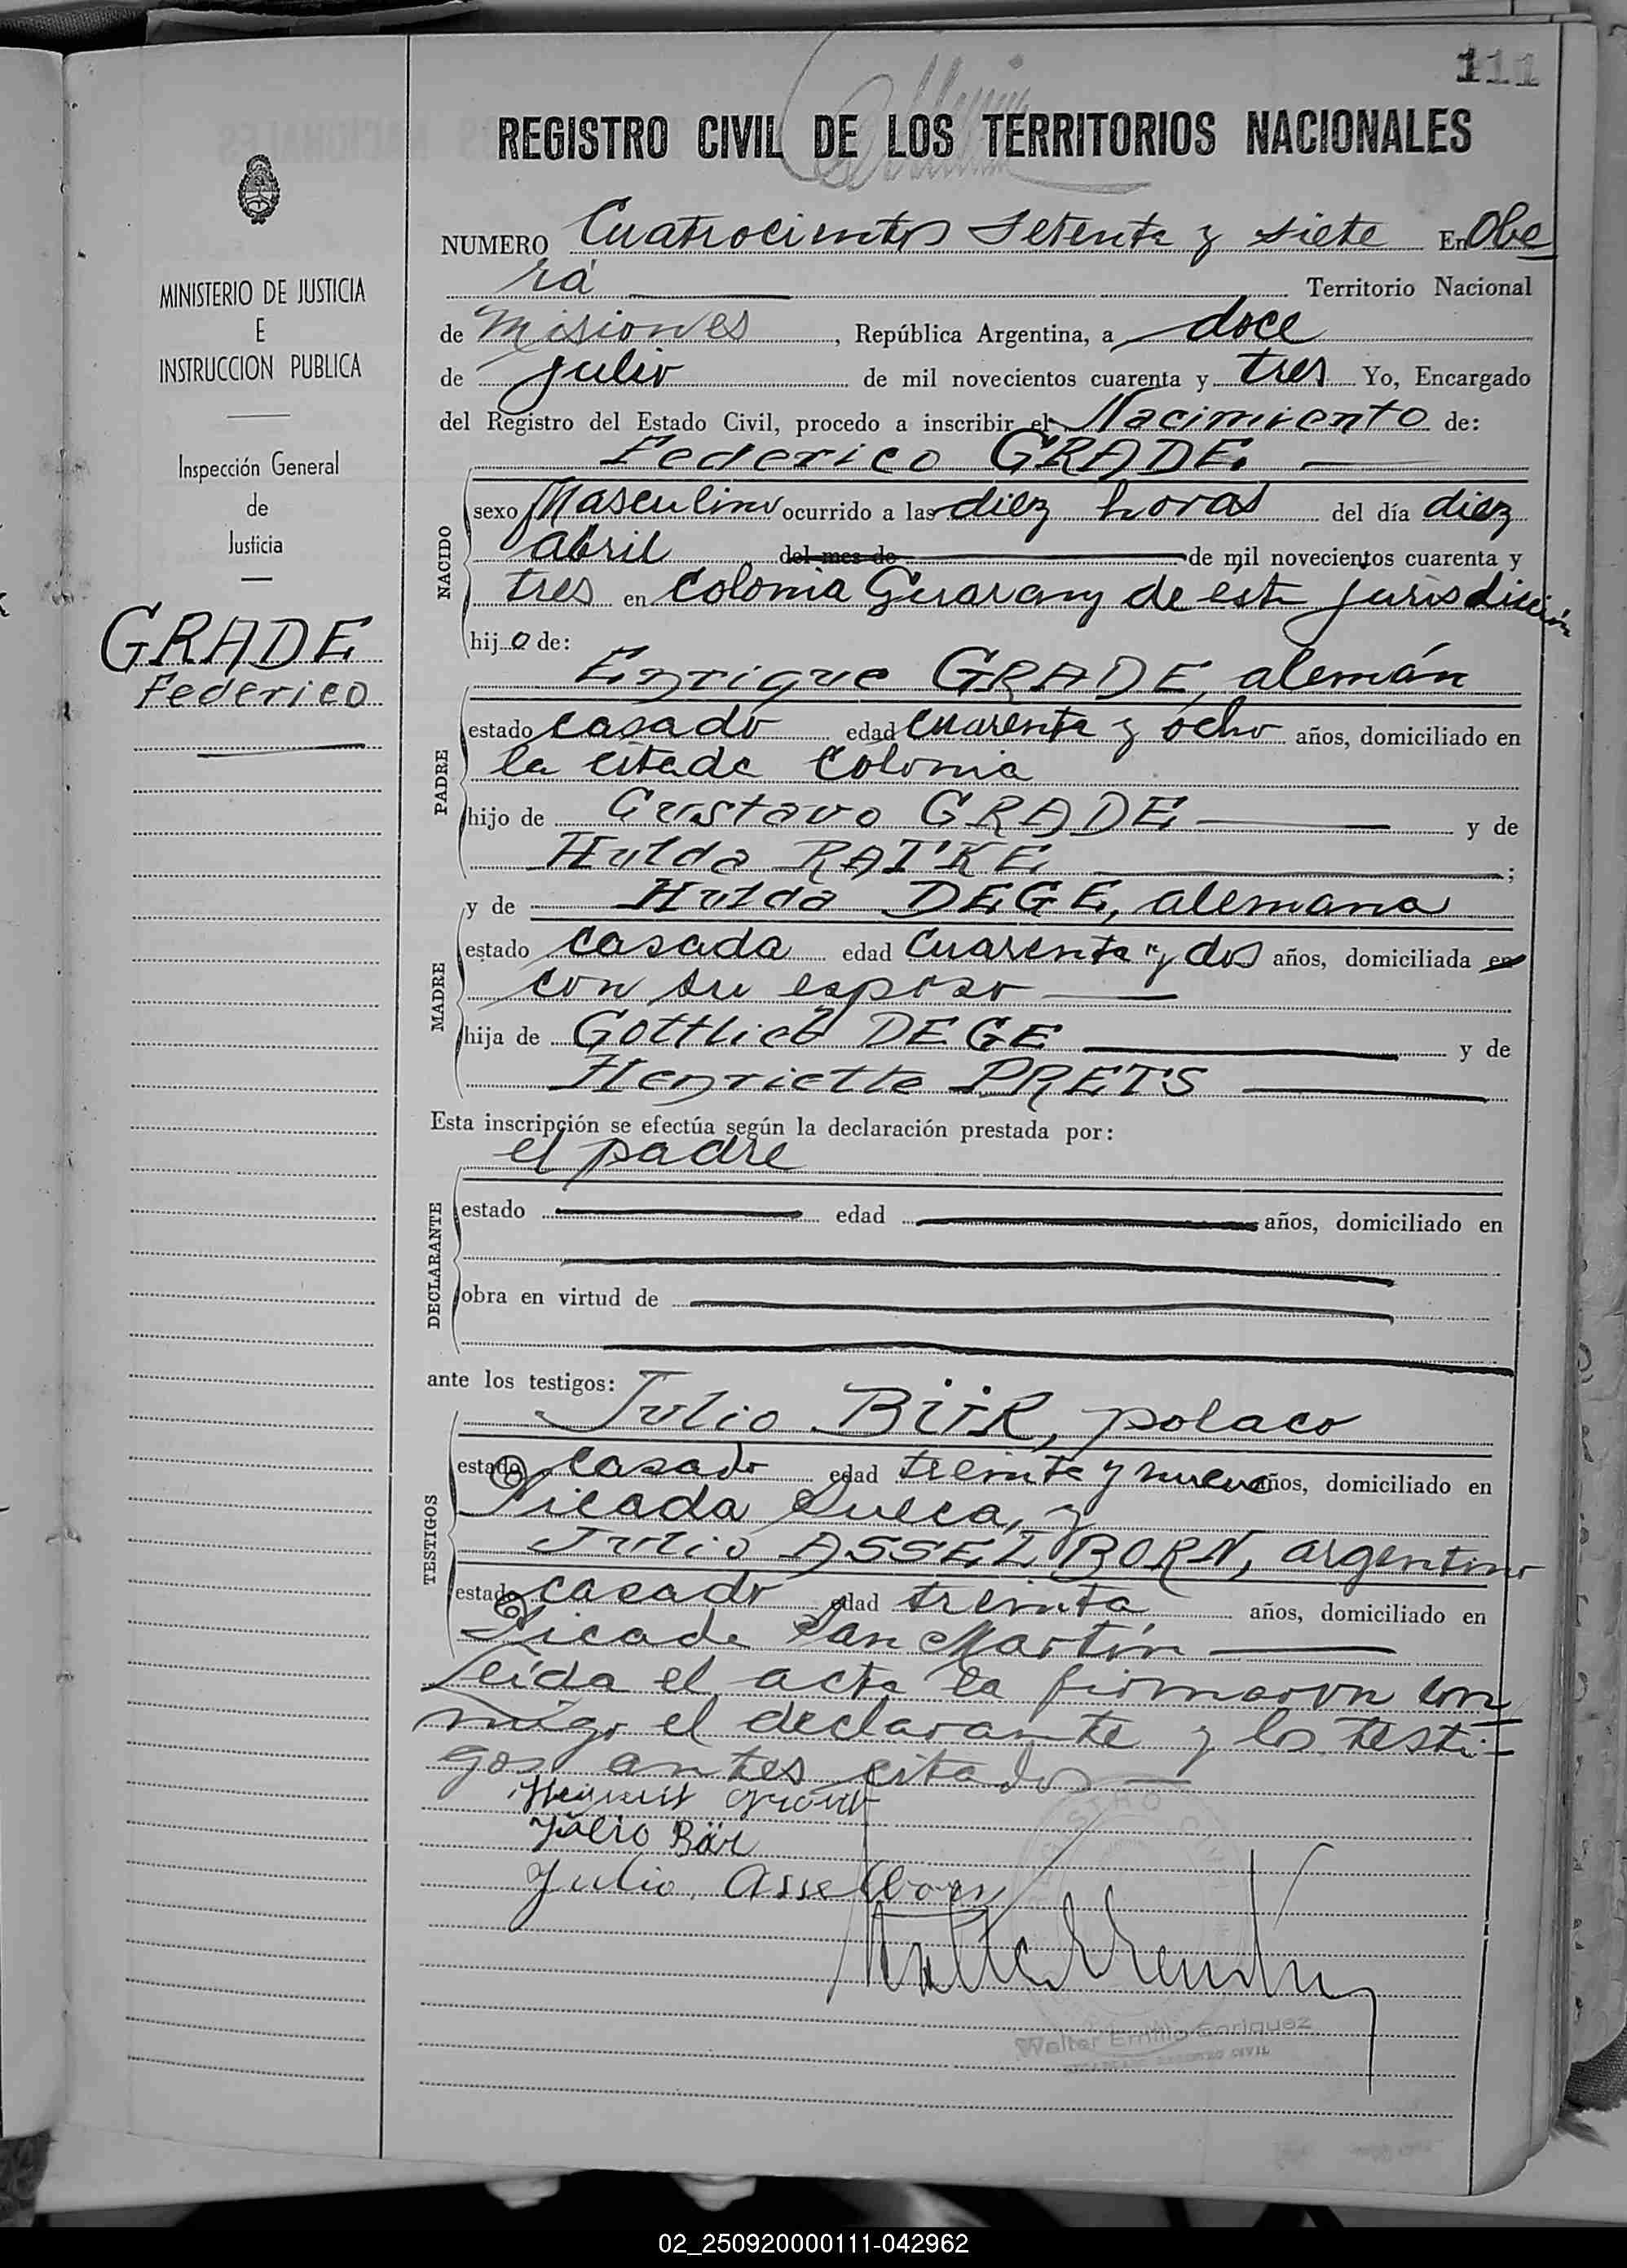 111
REGISTRO CIVIL DE LOS TERRITORIOS NACIONALES
MINISTERIO DE JUSTICIA
E
INSTRUCCION PUBLICA
Inspección General
de
Justicia
GRADE
Federico
NUMERO Cuatrocientos setenta y siete En Obe
rá Territorio Nacional
de Misiones, República Argentina, a doce
de julio de mil novecientos cuarenta y tres Yo, Encargado
del Registro del Estado Civil, procedo a inscribir el Nacimiento de:
Federico GRADE.
NACIDO
sexo Masculino ocurrido a las diez horas del día diez
abril del mes de de mil novecientos cuarenta y
tres en colonia Guarany de esta jurisdicción
hijo de:
Enrique GRADE, alemán
PADRE
estado casado edad cuarenta y ocho años, domiciliado en
la citada colonia
hijo de Gustavo GRADE y de
Hulda RATKE ;
y de Hulda DEGE, alemana
MADRE
estado casada edad cuarenta y dos años, domiciliada en
con su esposo
hija de Gottlieb DEGE y de
Henriette PRETS
Esta inscripción se efectúa según la declaración prestada por:
el padre
DECLARANTE
estado edad años, domiciliado en
obra en virtud de
ante los testigos:
Julio BÄR, polaco
TESTIGOS
estado casado edad treinta y nueve años, domiciliado en
Picada Sueca, y
Julio ASSELBORN, argentino
estado casado edad treinta años, domiciliado en
Picada San Martín
Leída el acta la firmaron con
migo el declarante y los testi-
gos antes citados
Julio Bär
Julio Asselborn
Walter Emilio Enriquez
ENCARGADO REGISTRO CIVIL
02_250920000111-042962